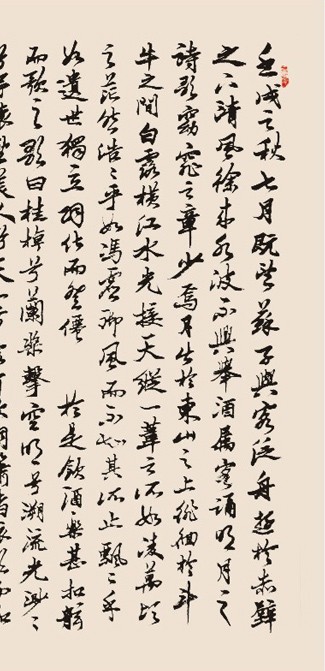 壬戌之秋七月既望蘇子與客泛舟遊於赤壁
之下清風徐來水波不興舉酒屬客誦明月之
詩歌窈窕之章少焉月出於東山之上徘徊於斗
牛之間白露橫江水光接天縱一葦之所如凌萬頃
之茫然浩々乎如馮虛御風而不知其所止飄々乎
如遺世獨立羽化而登僊 於是飲酒樂甚扣舷
而歌之歌曰桂棹兮蘭槳擊空明兮溯流光渺々